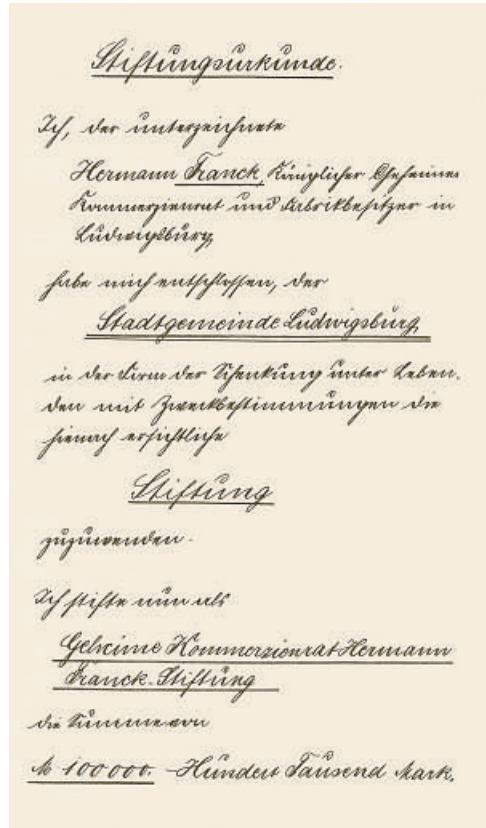 Stiftungsurkunde.
Ich, der unterzeichnete
Hermann Franck, Königlicher Geheimer
Kommerzienrat und Fabrikbesitzer in
Ludwigsburg,
habe mich entschlossen, der
Stadtgemeinde Ludwigsburg
in der Form der Schenkung unter Leben-
den mit Zweckbestimmungen die
hienach ersichtliche
Stiftung
zuzuwenden.
Ich stifte nun als
Geheime Kommerzienrat Hermann
Franck-Stiftung
die Summe von
M 100000. - Hundert Tausend Mark.